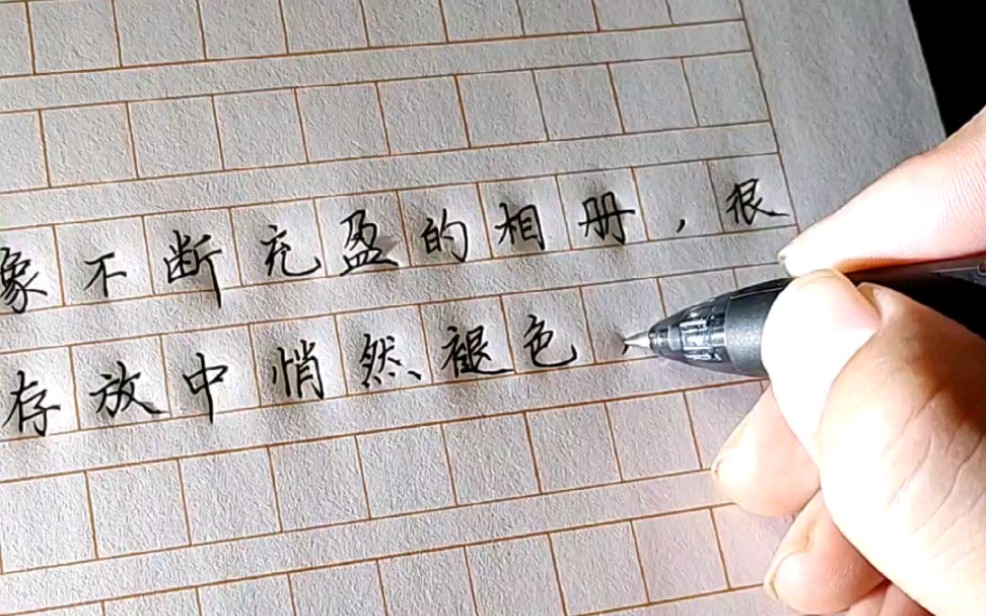 像不断充盈的相册，很
存放中悄然褪色，